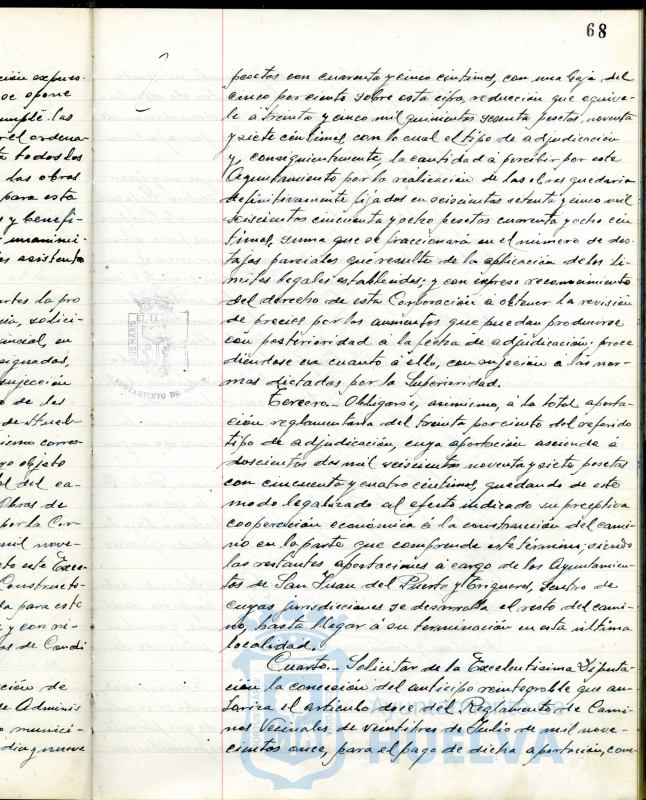 68
pesetas con cuarenta y cinco céntimos, con una baja del
cinco por ciento sobre esta cifra, reducción que equiva-
le a treinta y cinco mil quinientas sesenta pesetas noventa
y siete céntimos, con lo cual el tipo de adjudicación
y, consiguientemente, la cantidad á percibir por este
Ayuntamiento por la realización de las obras quedaria
definitivamente fijados en seiscientas setenta y cinco mil
seiscientas cincuenta y ocho pesetas cuarenta y ocho cén-
timos, suma que se fraccionará en el numero de des-
tajos parciales que resulte de la aplicación de los li-
mites legales establecidos; y con expreso reconocimiento
del derecho de esta Corporación á obtener la revisión
de precios por los aumentos que puedan producirse
con posterioridad a la fecha de adjudicación; proce-
diendose en cuanto á ello, con sujeción á las nor-
mas dictadas por la Superioridad.
Tercero.- Obligarse, asimismo, á la total aporta-
ción reglamentaria del treinta por ciento del referido
tipo de adjudicación, cuya aportación asciende á
doscientas dos mil seiscientas noventa y siete pesetas
con cincuenta y cuatro céntimos, quedando de este
modo legalizado al efecto indicado su preceptiva
cooperación económica á la construcción del cami-
no en la parte que comprende este término; siendo
las restantes aportaciones á cargo de los Ayuntamien-
tos de San Juan del Puerto y Trigueros, dentro de
cuyas jurisdicciones se desarrolla el resto del cami-
no, hasta llegar á su terminación en esta ultima
localidad.
Cuarto.- Solicitar de la Excelentisima Diputa-
ción la concesión del anticipo reintegrable que au-
toriza el articulo doce del Reglamento de Cami-
nos Vecinales de veintitres de Julio de mil nove-
cientos once, para el pago de dicha aportación, com-
HUELVA